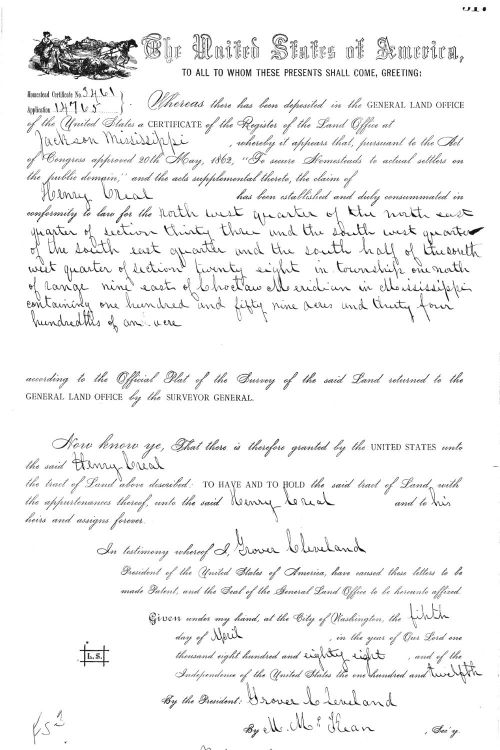 The United States of America,
TO ALL TO WHOM THESE PRESENTS SHALL COME, GREETING:
Homestead Certificate No. 3461
Application 14765
Whereas there has been deposited in the GENERAL LAND OFFICE
of the United States a CERTIFICATE of the Register of the Land Office at
Jackson Mississippi, whereby it appears that, pursuant to the Act
of Congress approved 20th May, 1862, "To secure Homesteads to actual settlers on
the public domain," and the acts supplemental thereto, the claim of
Henry Creal has been established and duly consummated in
conformity to law for the north west quarter of the north east
quarter of section thirty three and the south west quarter
of the south east quarter and the south half of the south
west quarter of section twenty eight in township one north
of range nine east of Choctaw Meridian in Mississippi
containing one hundred and fifty nine acres and thirty four
hundredths of an acre
according to the Official Plat of the Survey of the said Land returned to the
GENERAL LAND OFFICE by the SURVEYOR GENERAL.
Now know ye, That there is therefore granted by the UNITED STATES unto
the said Henry Creal
the tract of Land above described: TO HAVE AND TO HOLD the said tract of Land, with
the appurtenances thereof, unto the said Henry Creal and to his
heirs and assigns forever.
In testimony whereof I, Grover Cleveland
President of the United States of America, have caused these letters to be
made Patent, and the Seal of the General Land Office to be hereunto affixed.
Given under my hand, at the City of Washington, the fifth
day of April, in the year of Our Lord one
thousand eight hundred and eighty eight, and of the
L.S.
Independence of the United States the one hundred and twelfth
By the President: Grover Cleveland
By M. McKean, Sec'y.